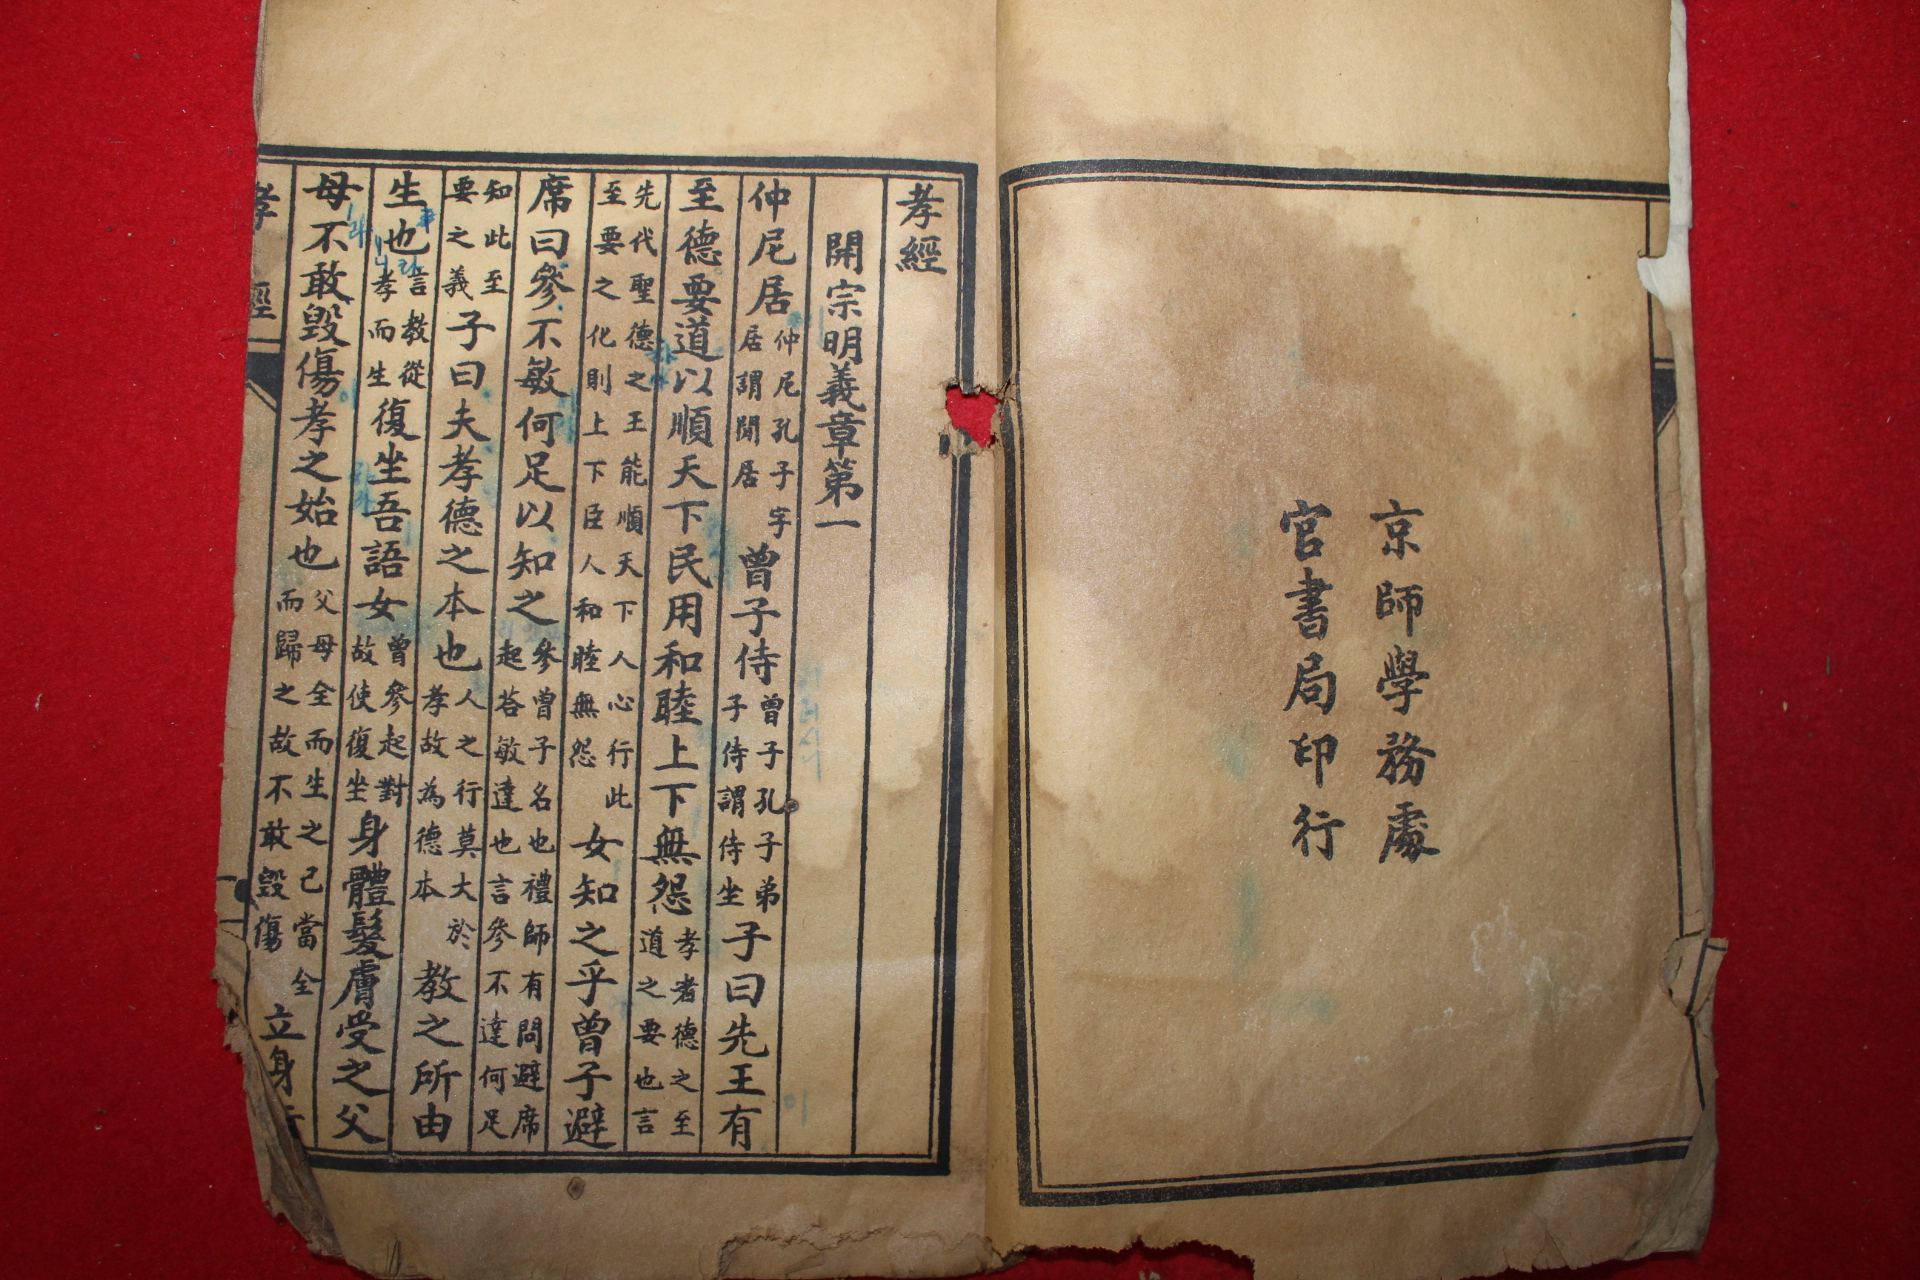 京師學務處
官書局印行
孝經
開宗明義章第一
仲尼居仲尼孔子字居謂閒居曾子侍曾子孔子弟子侍謂侍坐子曰先王有
至德要道以順天下民用和睦上下無怨孝者德之至道之要也言
先代聖德之王能順天下人心行此至要之化則上下臣人和睦無怨女知之乎曾子避
席曰參不敏何足以知之參曾子名也禮師有問避席起荅敏達也言參不達何足
知此至要之義子曰夫孝德之本也人之行莫大於孝故為德本教之所由
生也言教從孝而生復坐吾語女曾參起對故使復坐身體髮膚受之父
母不敢毀傷孝之始也父母全而生之己當全而歸之故不敢毀傷立身
孝經